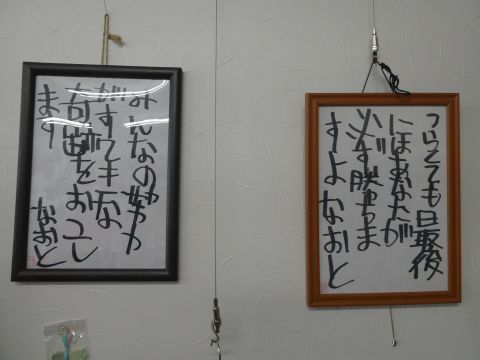 みんなの
がすてきな
奇跡をおこし
ます なおと
つらくても最後
にはあなたが
必ず勝ちま
すよ なおと